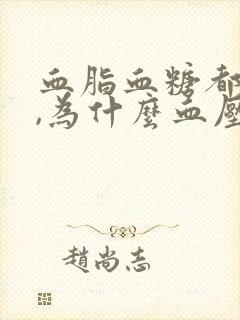 血脂血糖都
,為什麼血壓
趙尚志